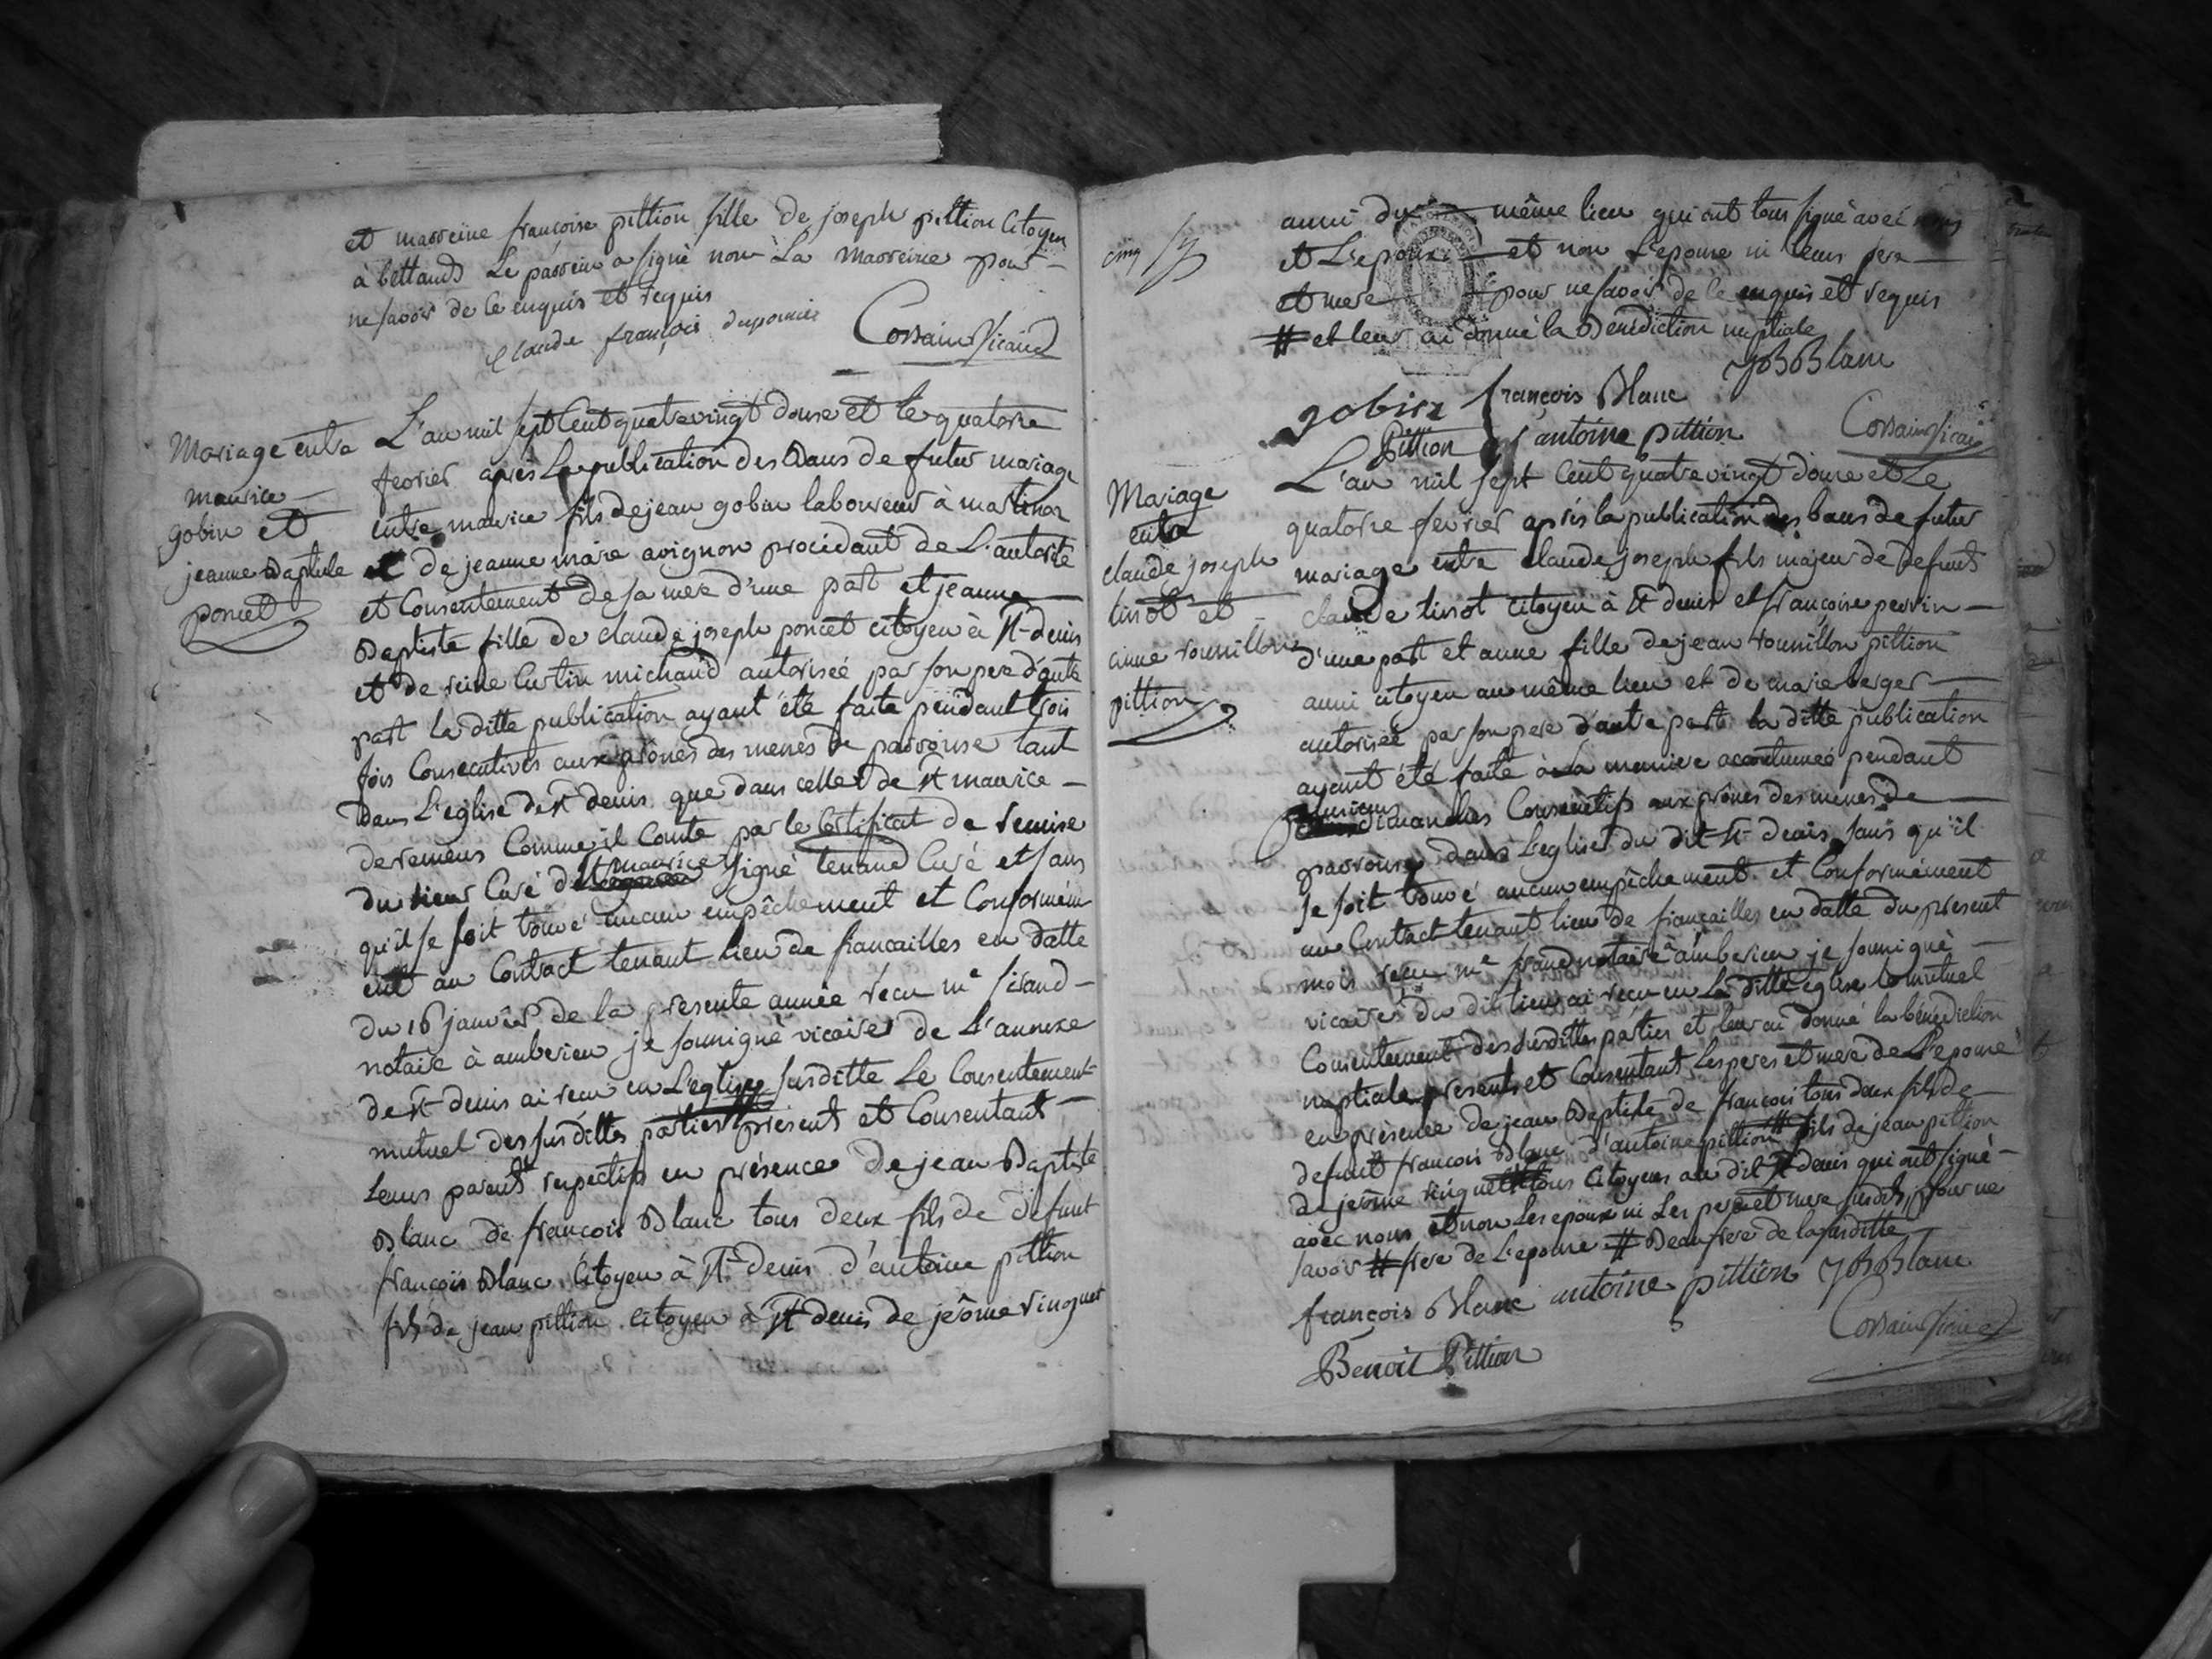 et marreine françoise pittion fille de joseph pittion Citoyen
à bettand Le parrein a signé non La marreine pour
ne savoir de ce enquis et requis
claude françois duponier
Mariage entre
maurice
gobin et
jeanne Baptiste
poncet
L'an mil sept Cent quatre vingt douse et le quatorse
fevrier après La publication des Bans de futur mariage
entre maurice fils de jean gobin laboureur à martinaz
et de jeanne marie avignon procédant de L'autorité
et Consentement de sa mere d'une part et jeanne
Baptiste fille de claude joseph poncet citoyen à St denis
et de reine Curtin michaud autorisée par son pere d'autre
part la ditte publication ayant été faite pendant trois
fois Consecutives aux prônes des messes de parroisse tant
dans L'eglise de st denis que dans celle de st maurice
de remens Comme il Conste par le Certificat de remise
du sieur Curé de St maurice signé tenand Curé et sans
qu'il se soit trouvé aucun empêchement et Conformém
ent au Contract tenant lieu de fiancailles en datte
du 16 janvier de la presente année recu me sirand
notaire à amberieu je soussigné vicaire de L'annexe
de st denis ai recu en L'eglise susditte Le Consentement
mutuel des susdittes parties # present et Consentant
Leurs parents respectifs en présence de jean Baptiste
Blanc de francois Blanc tous deux fils de defunt
francois Blanc Citoyen à St denis d'antoine pittion
fils de jean pittion Citoyen à St denis de jerôme ringuet
cinq
aussi du même lieu qui ont tous signé avec nous
et L'epoux et non L'epouse ni leurs pere
et mere pour ne savoir de ce enquis et requis
# et leur ai donné la Bénédiction nuptiale
JB Blanc
gobin françois Blanc
Pittion antoine pittion
Mariage
entre
claude joseph
tissot et
anne roumillon
pittion
L'an mil sept Cent quatre vingt douse et Le
quatorse fevrier après la publication des bans de futur
mariage entre claude joseph fils majeur de defunt
claude tissot citoyen à St denis et françoise perrin
d'une part et anne fille de jean roumillon pittion
aussi citoyen au même lieu et de marie berger
autorisée par son pere d'autre part la ditte publication
ayant été faite à la maniere accoutumée pendant
dimanches Consecutifs aux prônes des messes de
parroisse dans L'eglise du dit St denis sans qu'il
se soit trouvé aucun empêchement et Conformément
au Contract tenant lieu de fiançailles en datte du present
mois recu me sirand notaire à amberieu je soussigné
vicaire du dit lieu ai recu en La ditte eglise le mutuel
Consentement des susdittes parties et leur ai donné la bénédiction
nuptiale present et Consentant Les peres et mere de L'epouse
en présence de jean Baptiste de francois tous deux fils de
defunt francois Blanc d'antoine pittion # fils de jean pittion
de jerôme ringuet # tous Citoyens au dit St denis qui ont signé
avec nous et non Les epoux ni Les pere et mere susdits pour ne
savoir # frere de L'epouse # Beaufrere de la susditte
françois Blanc antoine pittion JB Blanc
Benoit Pittion